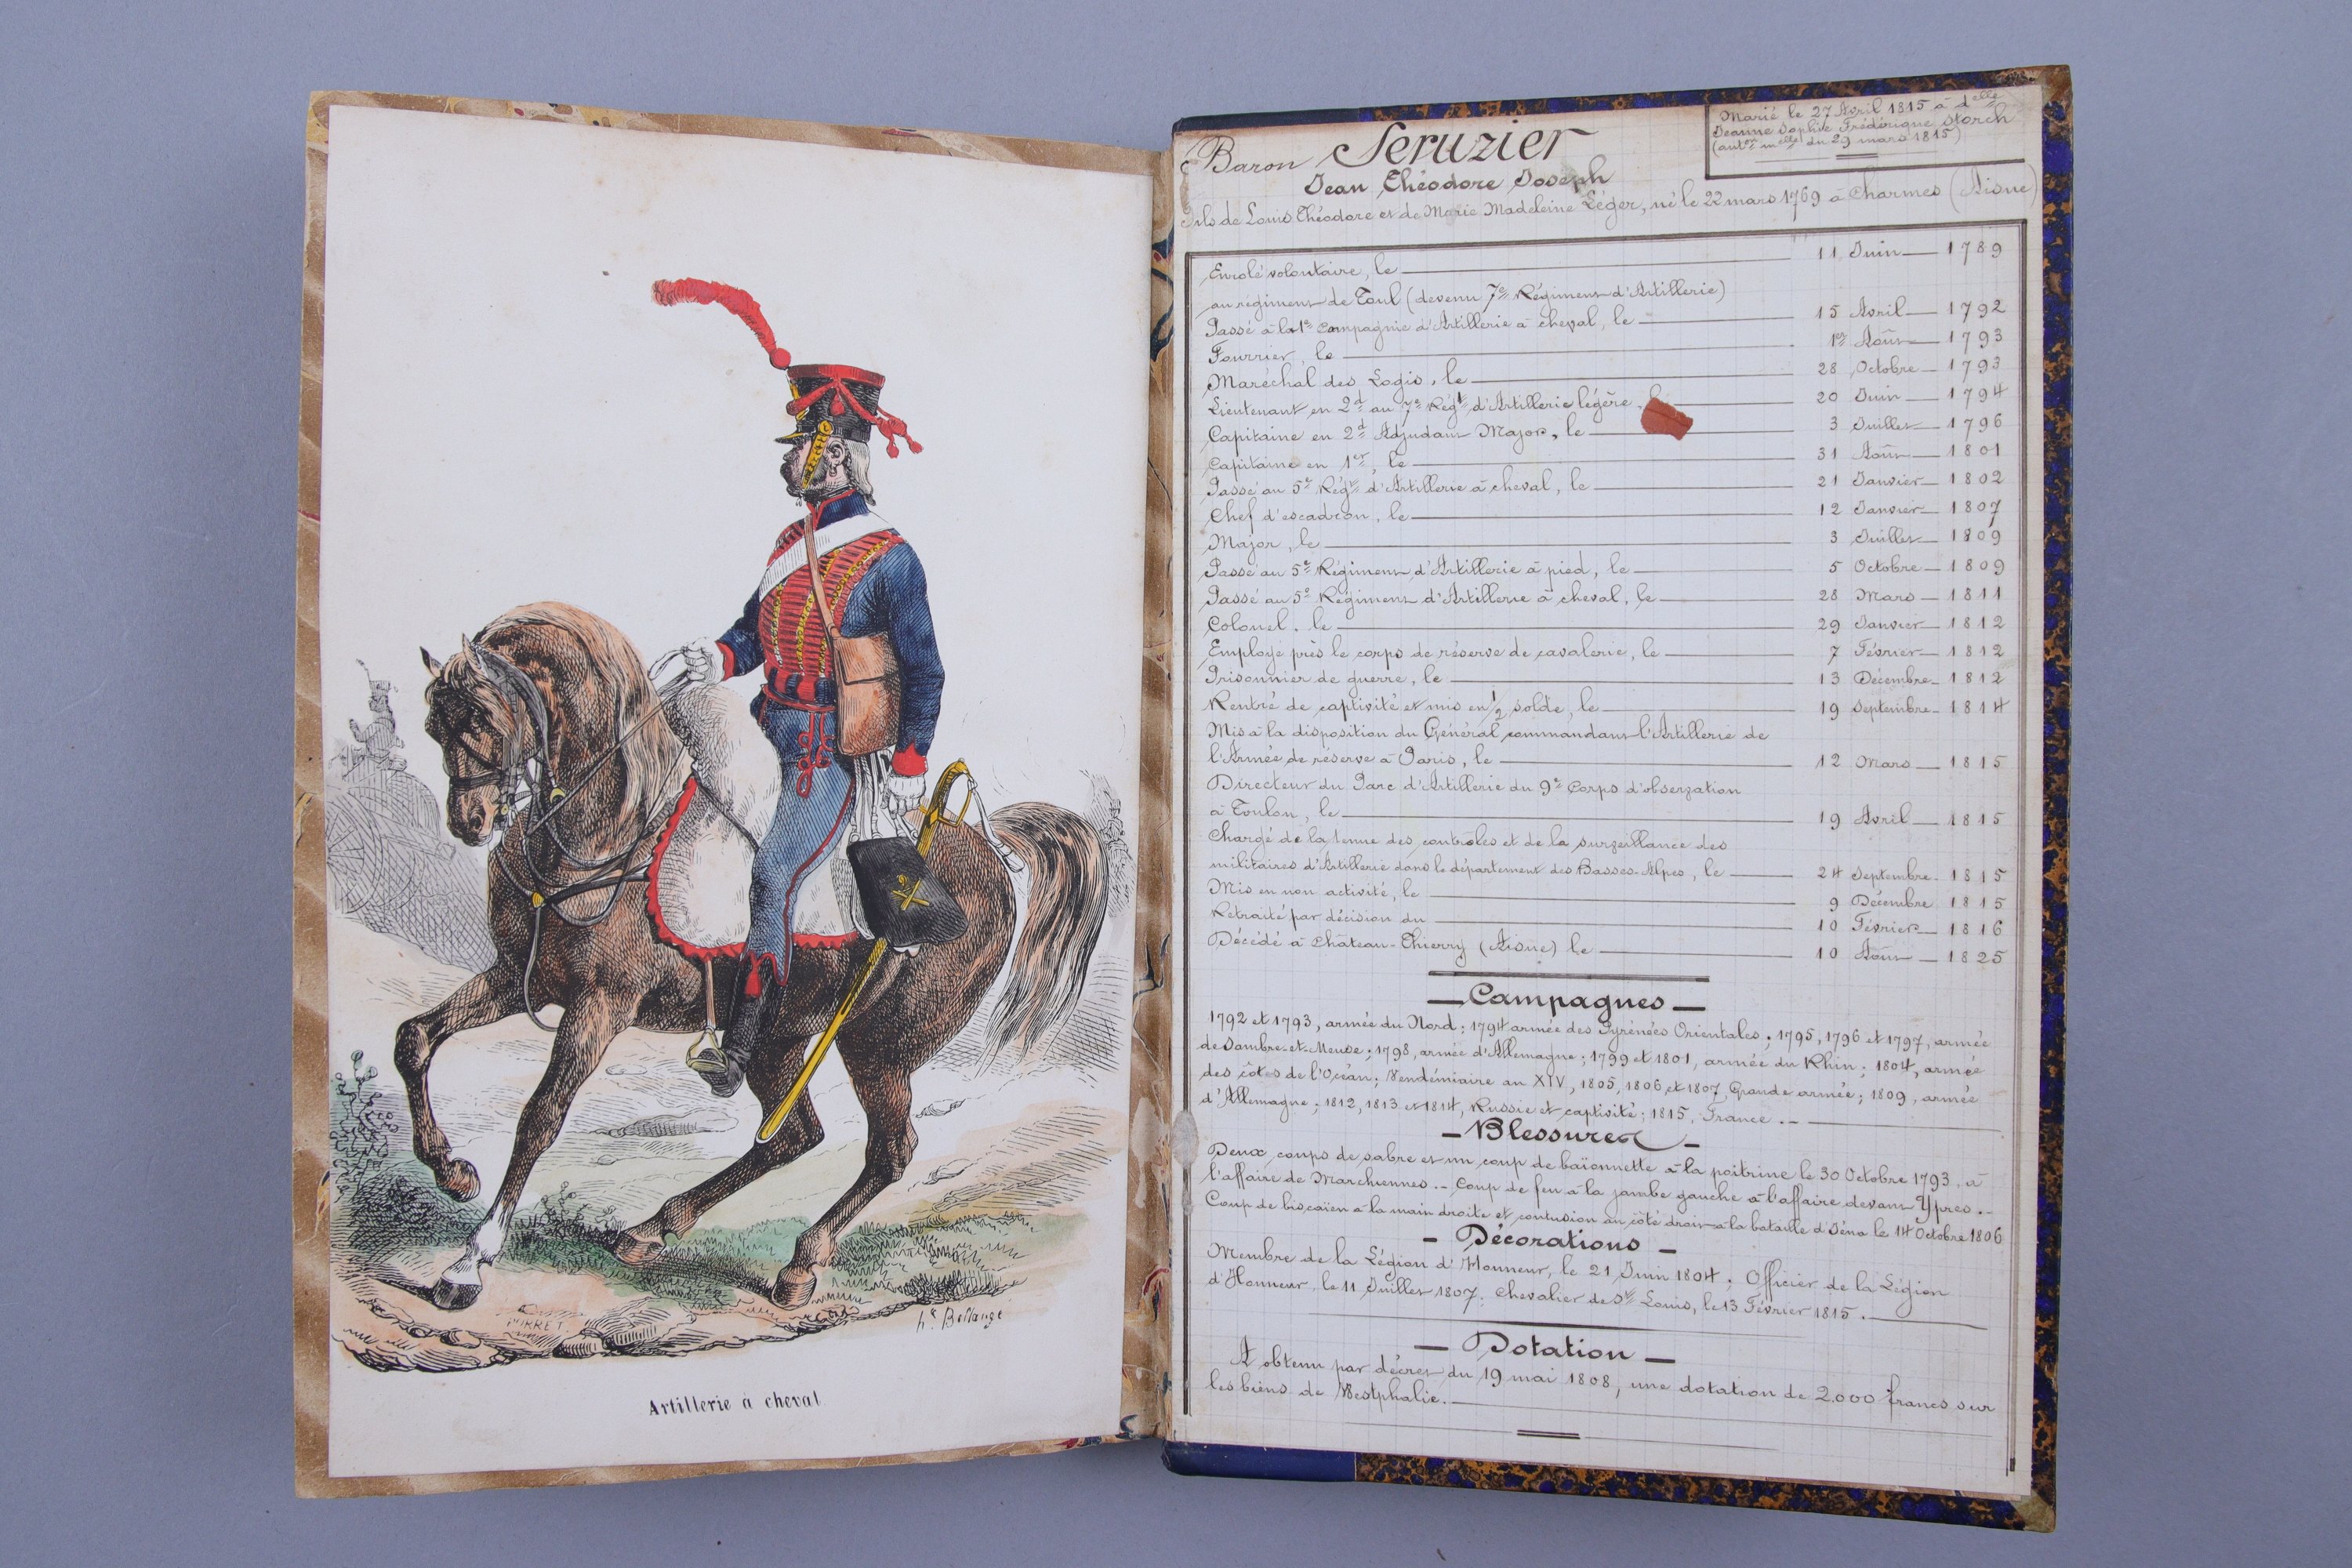 PORRET
hte Bellangé
Artillerie à cheval
Marié le 27 Avril 1815 à delle
Jeanne Sophie Frédérique Storch
(auton melle du 29 mars 1815)
Baron Seruzier
Jean Théodore Joseph
Fils de Louis Théodore et de Marie Madeleine Léger, né le 22 mars 1769 à Charmes (Aisne)
Enrolé volontaire, le 11 Juin 1789
au régiment de Toul (devenu 7e Régiment d'Artillerie)
Passé à la 1e Compagnie d'Artillerie à cheval, le 15 Avril 1792
Fourrier, le 1er Août 1793
Maréchal des Logis, le 28 Octobre 1793
Lieutenant en 2d au 7e Régt d'Artillerie légère, 20 Juin 1794
Capitaine en 2d Adjudant Major, le 3 Juillet 1796
Capitaine en 1er, le 31 Août 1801
Passé au 5e Régt d'Artillerie à cheval, le 21 Janvier 1802
Chef d'escadron, le 12 Janvier 1807
Major, le 3 Juillet 1809
Passé au 5e Régiment d'Artillerie à pied, le 5 Octobre 1809
Passé au 5e Régiment d'Artillerie à cheval, le 28 Mars 1811
Colonel, le 29 Janvier 1812
Employé près le corps de réserve de cavalerie, le 7 Février 1812
Prisonnier de guerre, le 13 Décembre 1812
Rentré de captivité et mis en 1/2 solde, le 19 Septembre 1814
Mis à la disposition du Général commandant l'Artillerie de
l'Armée de réserve à Paris, le 12 Mars 1815
Directeur du Parc d'Artillerie du 9e Corps d'observation
à Toulon, le 19 Avril 1815
Chargé de la tenue des contrôles et de la surveillance des
militaires d'Artillerie dans le département des Basses-Alpes, le 24 Septembre 1815
Mis en non activité, le 9 Décembre 1815
Retraité par décision du 10 Février 1816
Décédé à Château-Thierry (Aisne) le 10 Août 1825
— Campagnes —
1792 et 1793, armée du Nord; 1794 armée des Pyrénées Orientales; 1795, 1796 et 1797, armée
de Sambre-et-Meuse; 1798, armée d'Allemagne; 1799 et 1801, armée du Rhin; 1804, armée
des côtes de l'Océan; Vendémiaire an XIV, 1805, 1806 et 1807, Grande armée; 1809, armée
d'Allemagne; 1812, 1813 et 1814, Russie et captivité; 1815, France.
— Blessures —
Deux coups de sabre et un coup de baïonnette à la poitrine le 30 Octobre 1793, à
l'affaire de Marchiennes. - Coup de feu à la jambe gauche à l'affaire devant Ypres. -
Coup de biscaïen à la main droite et contusion au côté droit à la bataille d'Iéna le 14 Octobre 1806
- Décorations -
Membre de la Légion d'Honneur, le 21 Juin 1804; Officier de la Légion
d'Honneur, le 11 Juillet 1807; Chevalier de St Louis, le 13 Février 1815.
— Dotation —
A obtenu par décret du 19 mai 1808, une dotation de 2.000 francs sur
les biens de Westphalie.